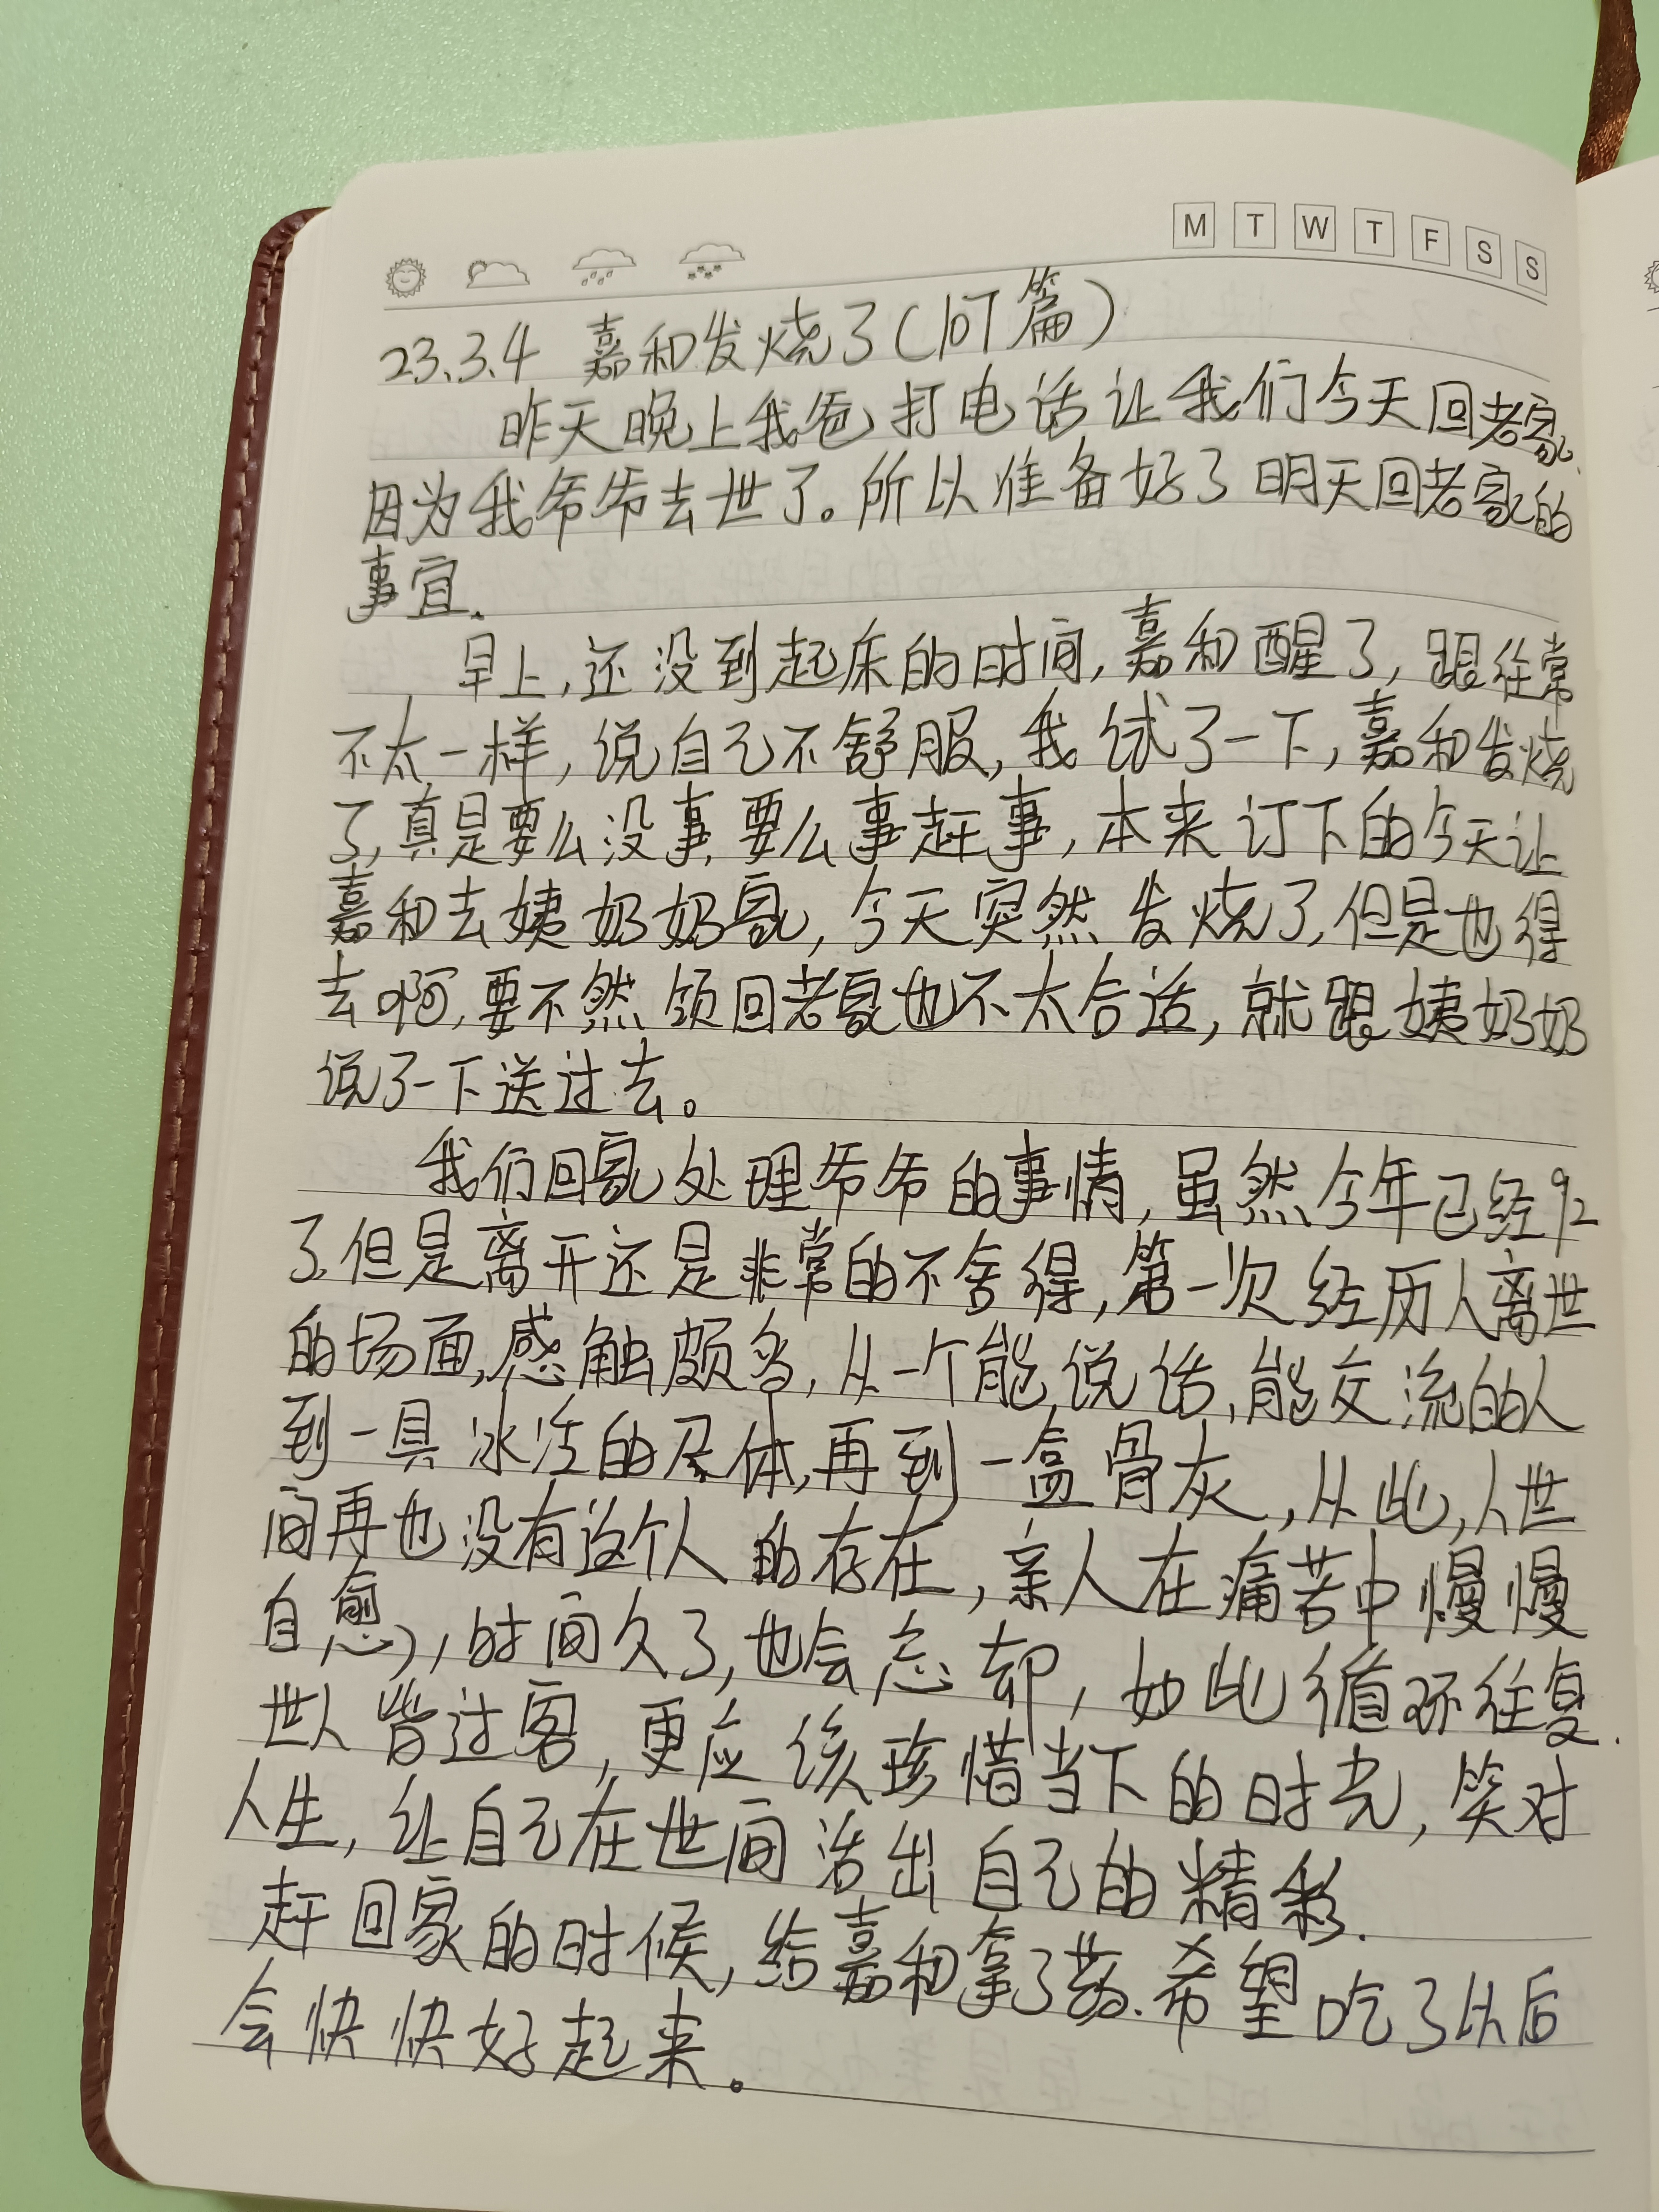 M T W T F S S
23.3.4 嘉和发烧了(107篇)
昨天晚上我爸打电话让我们今天回老家,
因为我爷爷去世了。所以准备好了明天回老家的
事宜.
早上,还没到起床的时间,嘉和醒了,跟往常
不太一样,说自己不舒服,我试了一下,嘉和发烧
了,真是要么没事,要么事赶事,本来订下的今天让
嘉和去姨奶奶家,今天突然发烧了,但是也得
去啊,要不然领回老家也不太合适,就跟姨奶奶
说了一下送过去。
我们回家处理爷爷的事情,虽然今年已经92
了,但是离开还是非常的不舍得,第一次经历人离世
的场面,感触颇多,从一个能说话,能交流的人
到一具冰冷的尸体,再到一盒骨灰,从此,人世
间再也没有这个人的存在,亲人在痛苦中慢慢
自愈,时间久了,也会忘却,如此循环往复.
世人皆过客,更应该珍惜当下的时光,笑对
人生,让自己在世间活出自己的精彩.
赶回家的时候,给嘉和拿了药.希望吃了以后
会快快好起来。